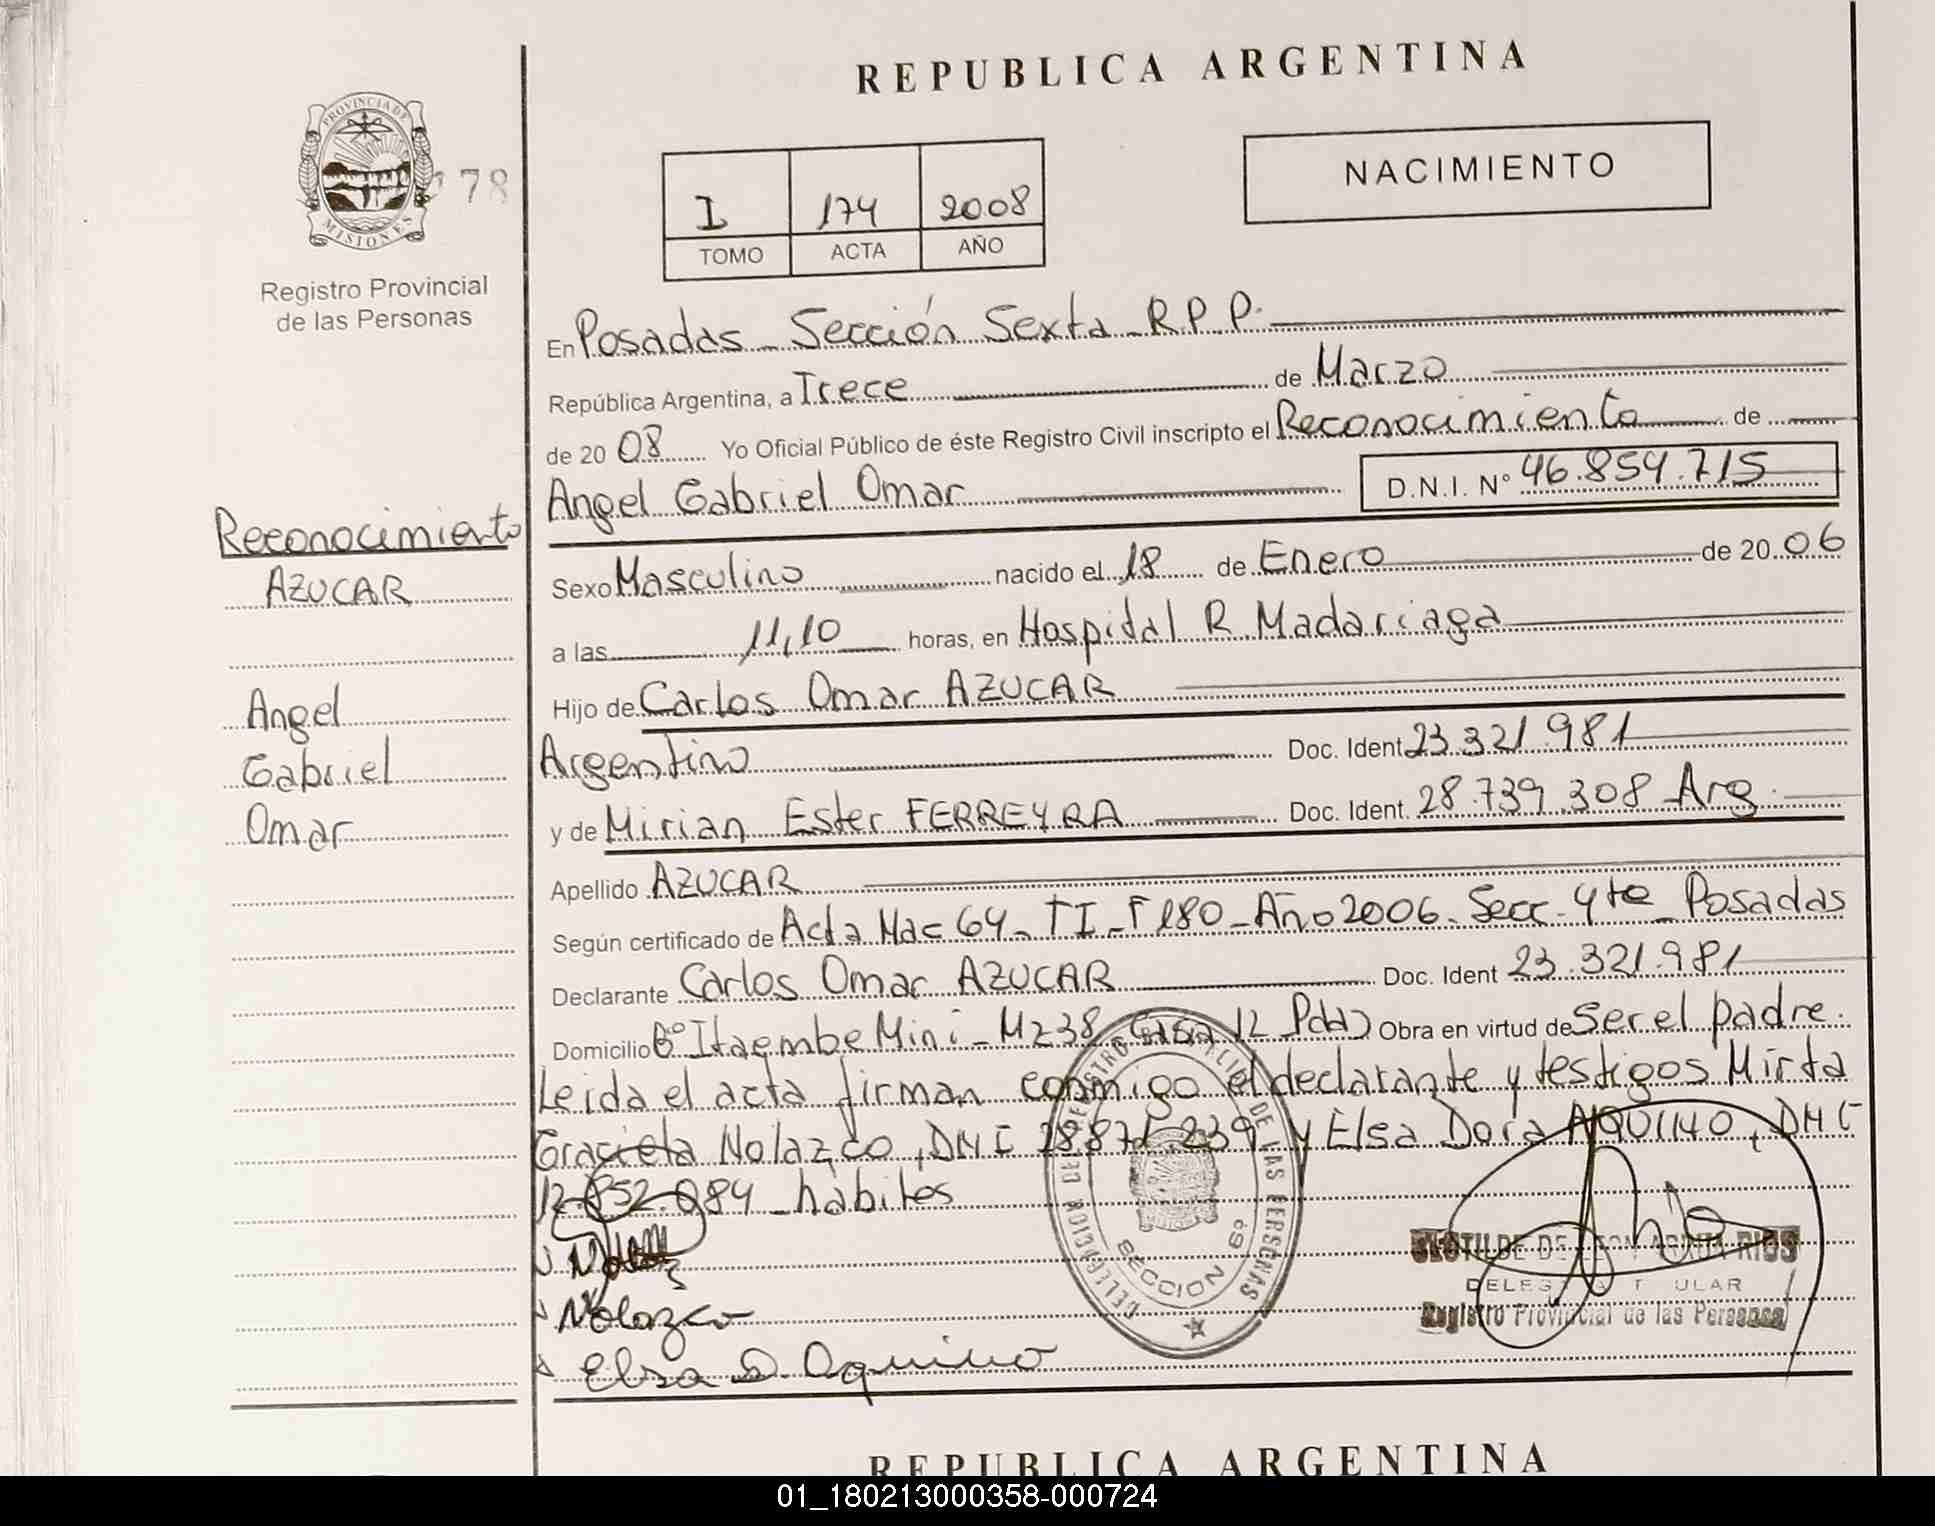 REPUBLICA ARGENTINA
PROVINCIA DE
MISIONES
78
Registro Provincial
de las Personas
I 174 2008
TOMO ACTA AÑO
NACIMIENTO
En Posadas - Sección Sexta - R.P.P.
República Argentina, a Trece de Marzo
de 20 08 Yo Oficial Público de éste Registro Civil inscripto el Reconocimiento de
Angel Gabriel Omar D.N.I. Nº 46.854.715
Sexo Masculino nacido el 18 de Enero de 20 06
a las 11,10 horas, en Hospital R. Madariaga
Hijo de Carlos Omar AZUCAR
Argentino Doc. Ident 23.321.981
y de Mirian Ester FERREYRA Doc. Ident. 28.739.308 Arg.
Apellido AZUCAR
Según certificado de Acta Nac 64 - TI - F 180 - Año 2006. Secc. 4ta - Posadas
Declarante Carlos Omar AZUCAR Doc. Ident 23.321.981
Domicilio Bº Itaembe Mini - Mz 38 Casa 12 Pdas Obra en virtud de Ser el padre.
Leida el acta firman conmigo el declarante y testigos Mirta
Graciela Nolazco, DNI 28.871.239 y Elsa Dora AQUINO, DNI
12.852.084 hábiles
Nolazco
Elsa D. Aquino
Reconocimiento
AZUCAR
Angel
Gabriel
Omar
DELEGACION DEL REGISTRO PROVINCIAL DE LAS PERSONAS
SECCION 6º
CLOTILDE DE RIOS
DELEGADA TITULAR
Registro Provincial de las Personas
REPUBLICA ARGENTINA
01_180213000358-000724